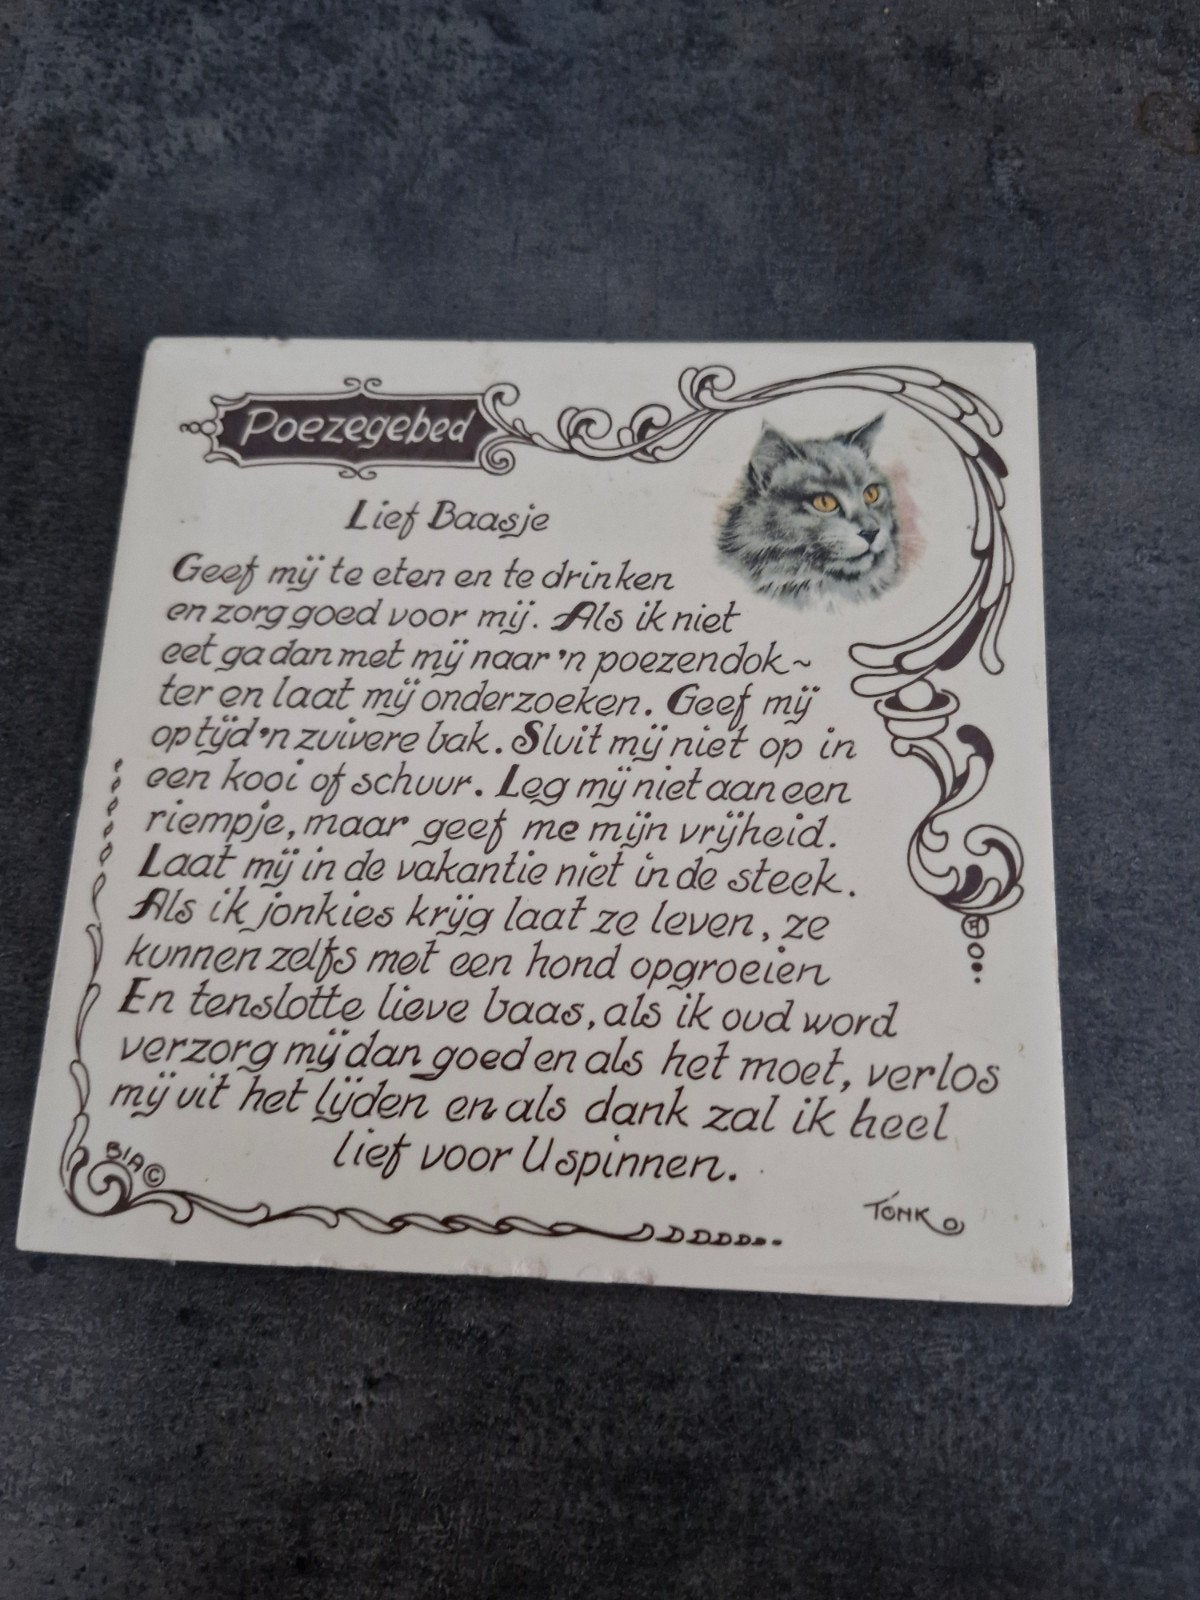 Poezegebed
Lief Baasje
Geef mij te eten en te drinken
en zorg goed voor mij. Als ik niet
eet ga dan met mij naar 'n poezendok~
ter en laat mij onderzoeken. Geef mij
op tijd 'n zuivere bak. Sluit mij niet op in
een kooi of schuur. Leg mij niet aan een
riempje, maar geef me mijn vrijheid.
Laat mij in de vakantie niet in de steek.
Als ik jonkies krijg laat ze leven, ze
kunnen zelfs met een hond opgroeien
En tenslotte lieve baas, als ik oud word
verzorg mij dan goed en als het moet, verlos
mij uit het lijden en als dank zal ik heel
lief voor U spinnen.
BIA©
TONK